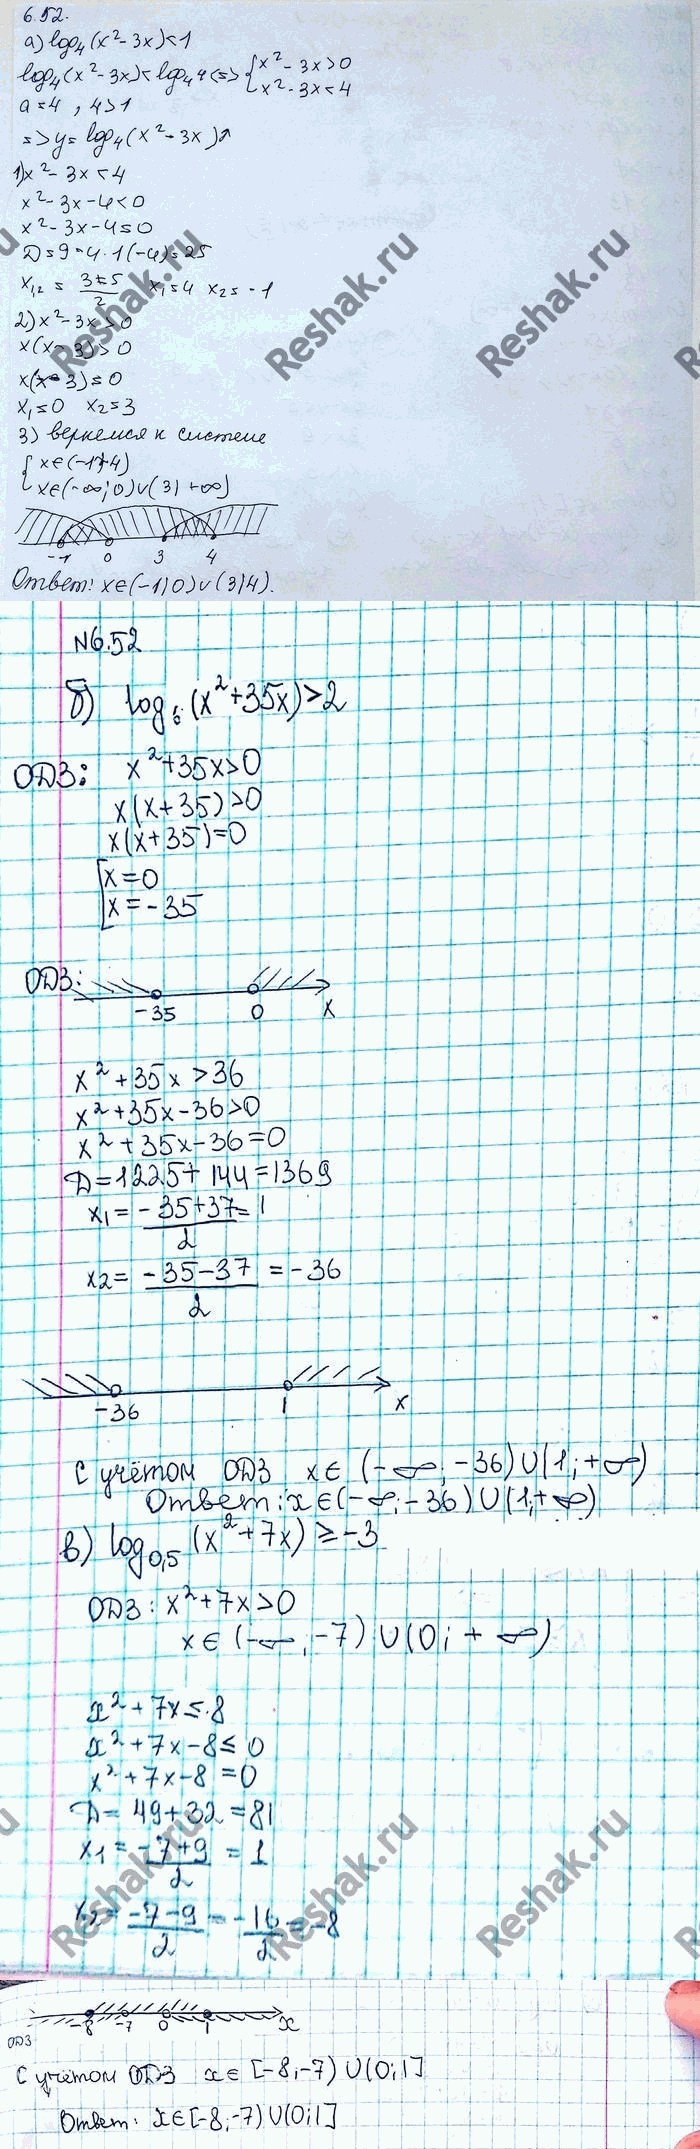 6.52.
а) log₄(x²-3x)<1
log₄(x²-3x)<log₄4<=> { x²-3x>0
x²-3x<4
a=4 , 4>1
=>y=log₄(x²-3x)↑
1)x²-3x<4
x²-3x-4<0
x²-3x-4=0
D=9-4·1(-4)=25
x₁,₂ = 3±5/2 x₁=4 x₂=-1
2)x²-3x>0
x(x-3)>0
x(x-3)=0
x₁=0 x₂=3
3) вернемся к системе
{ x∈(-1;4)
x∈(-∞;0)∪(3;+∞)
-1 0 3 4
Ответ: x∈(-1;0)∪(3;4).
№6.52
б) log₆(x²+35x)>2
ОДЗ: x²+35x>0
x(x+35)>0
x(x+35)=0
[ x=0
x=-35
ОДЗ:
-35 0 x
x²+35x>36
x²+35x-36>0
x²+35x-36=0
D=1225+144=1369
x₁= -35+37/2 = 1
x₂= -35-37/2 = -36
-36 1 x
С учётом ОДЗ x∈(-∞;-36)∪(1;+∞)
Ответ: x∈(-∞;-36)∪(1;+∞)
в) log₀,₅(x²+7x)≥-3
ОДЗ: x²+7x>0
x∈(-∞;-7)∪(0;+∞)
x²+7x≤8
x²+7x-8≤0
x²+7x-8=0
D=49+32=81
x₁= -7+9/2 = 1
x₂= -7-9/2 = -16/2 = -8
-8 -7 0 1 x
ОДЗ
С учётом ОДЗ x∈[-8;-7)∪(0;1]
Ответ: x∈[-8;-7)∪(0;1]
Reshak.ru
Reshak.ru
Reshak.ru
Reshak.ru
Reshak.ru
Reshak.ru